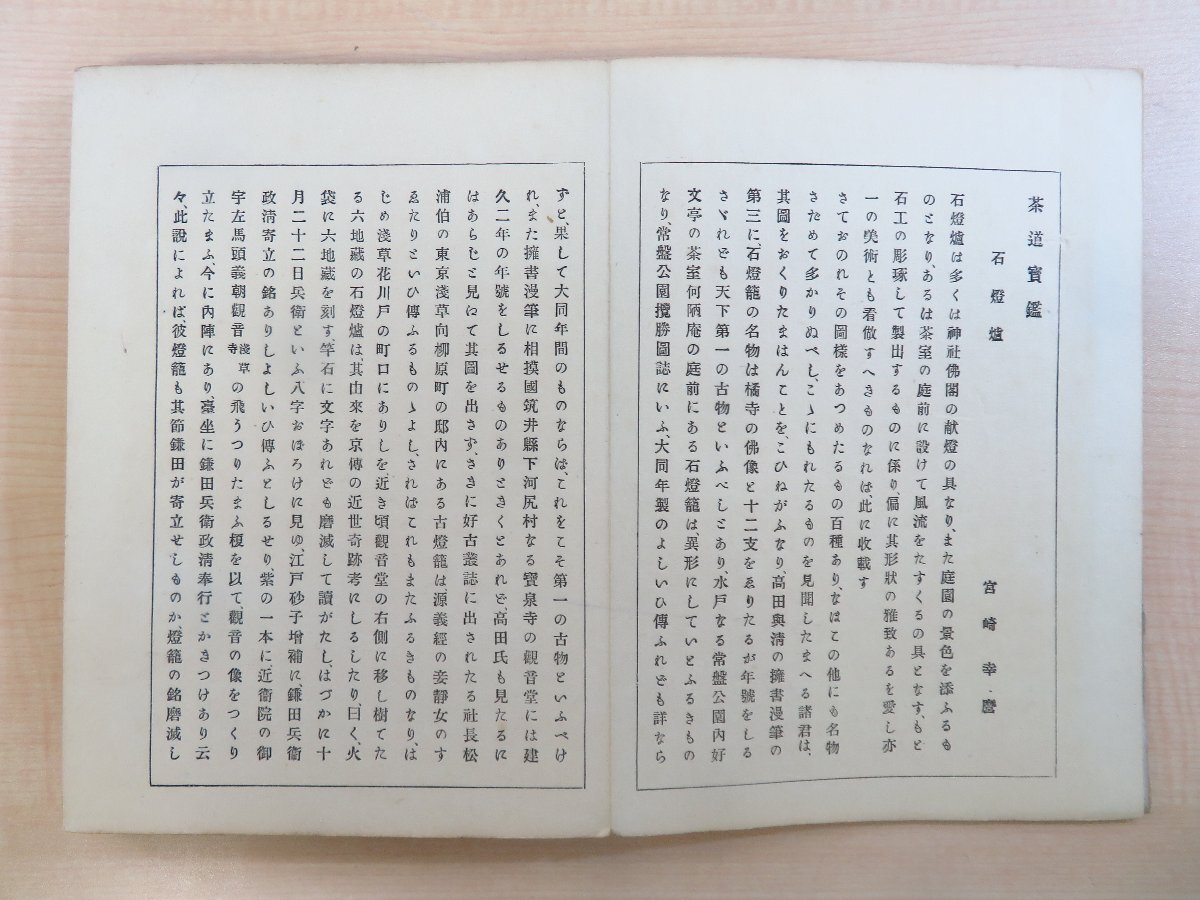 茶道寳鑑
石燈爐
宮崎幸麿
石燈爐は多くは神社佛閣の献燈の具なり、また庭園の景色を添ふるも
のとなり、あるは茶室の庭前に設けて風流をたすくるの具となす、もと
石工の彫琢して製出するものに係り、偏に其形狀の雅致あるを愛し亦
一の美術とも看倣すへきものなれは、此に收載す
さておのれその圖樣をあつめたるもの百種あり、なほこの他にも名物
さためて多かりぬべし、こゝにもれたるものを見聞したまへる諸君は、
其圖をおくりたまはんことを、こひねがふなり、高田與清の擁書漫筆の
第三に、石燈籠の名物は橘寺の佛像と十二支をゑりたるが年號をしる
さゞれども天下第一の古物といふべしとあり、水戸なる常盤公園內好
文亭の茶室何陋庵の庭前にある石燈籠は異形にしていとふるきもの
なり、常盤公園攬勝圖誌にいふ、大同年製のよしいひ傳ふれども詳なら
ずと、果して大同年間のものならは、これをこそ第一の古物といふべけ
れ、また擁書漫筆に相摸國筑井縣下河尻村なる寳泉寺の觀音堂には建
久二年の年號をしるせるものありときくとあれど、高田氏も見たるに
はあらじと見ゆて其圖を出さず、さきに好古叢誌に出されたる社長松
浦伯の東京淺草向柳原町の邸內にある古燈籠は源義經の妾靜女のす
ゑたりといひ傳ふるものゝよし、されはこれもまたふるきものなり、は
じめ淺草花川戸の町口にありしを、近き頃觀音堂の右側に移し樹てた
る六地藏の石燈爐は、其由來を京傳の近世奇跡考にしるしたり、曰く、火
袋に六地藏を刻す、竿石に文字あれども磨滅して讀がたし、はづかに十
月二十二日兵衛といふ八字おぼろけに見ゆ、江戸砂子增補に、鎌田兵衛
政清寄立の銘ありしよしいひ傳ふとしるせり、紫の一本に、近衛院の御
宇左馬頭義朝觀音淺草寺の飛うつりたまふ榎を以て、觀音の像をつくり
立たまふ、今に內陣にあり、臺坐に鎌田兵衛政淸奉行とかきつけあり云
々、此說によれば、彼燈籠も其節鎌田が寄立せしものか、燈籠の銘磨滅し